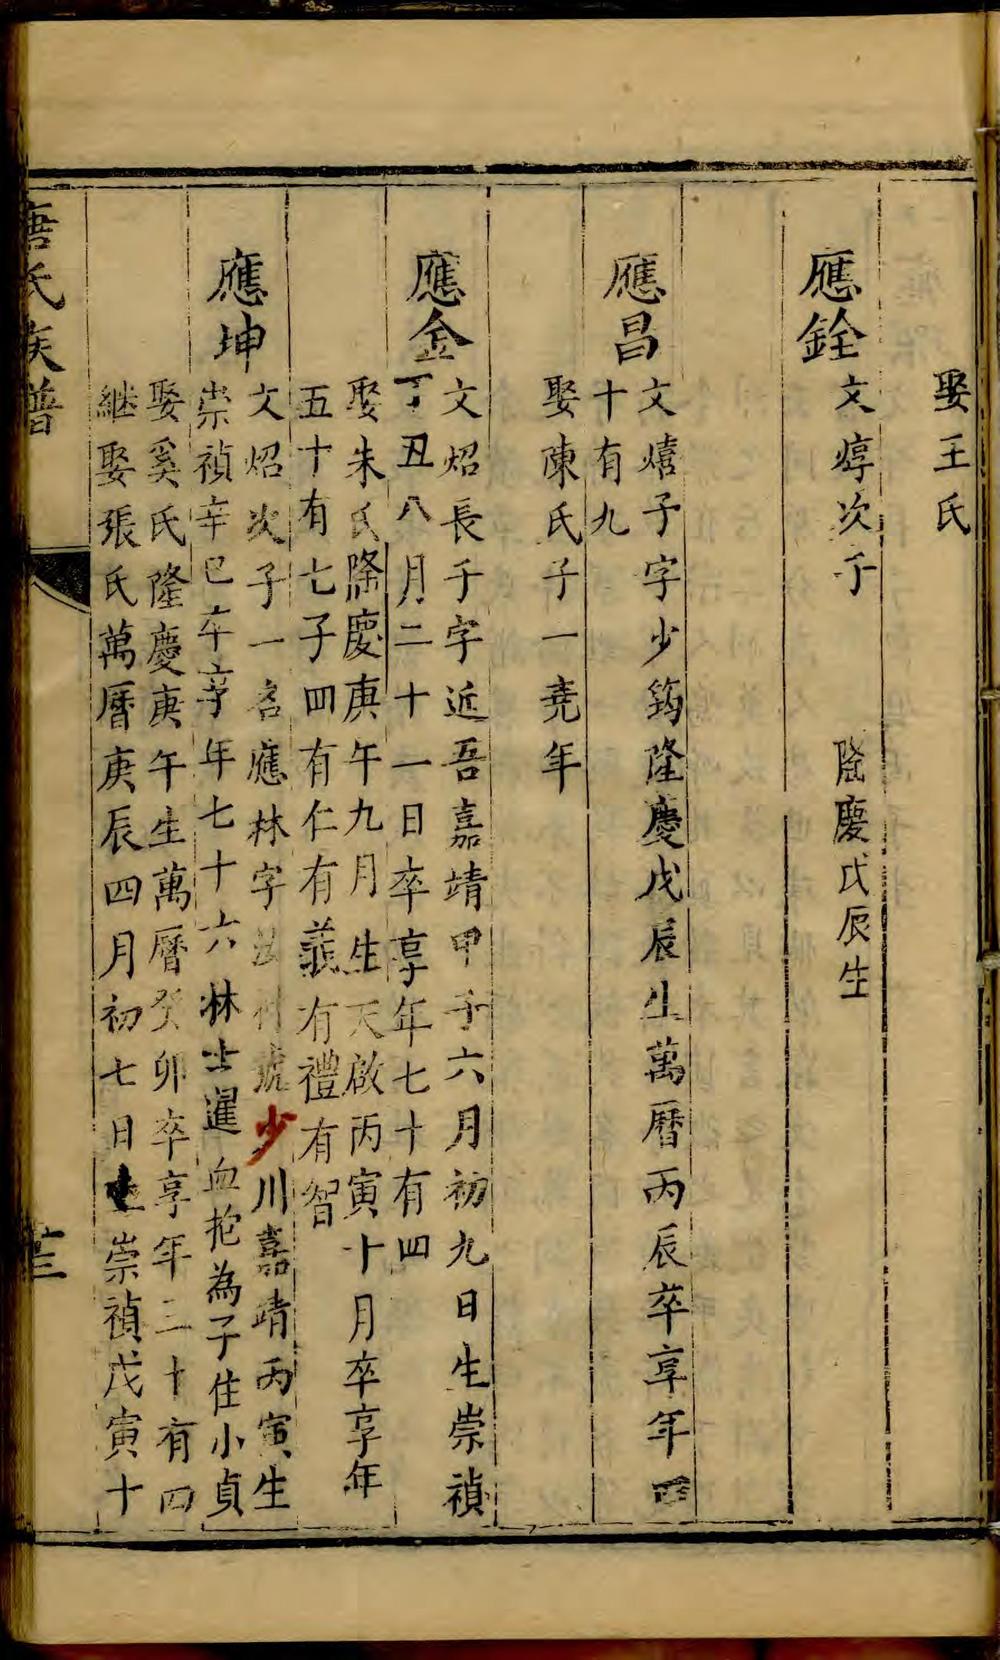 娶王氏
應銓
文焞次子 隆慶戊辰生
應昌
文熺子字少筠隆慶戊辰生萬曆丙辰卒享年四
十有九
娶陳氏子一堯年
應金
文炤長子字近吾嘉靖甲子六月初九日生崇禎
丁丑八月二十一日卒享年七十有四
娶朱氏隆慶庚午九月生天啟丙寅十月卒享年
五十有七子四有仁有義有禮有智
應坤
文炤次子一名應林字號少川嘉靖丙寅生
崇禎辛巳卒享年七十六林士暹血抱為子住小貞
娶奚氏隆慶庚午生萬曆癸卯卒享年三十有四
継娶張氏萬曆庚辰四月初七日生崇禎戊寅十
唐氏族譜